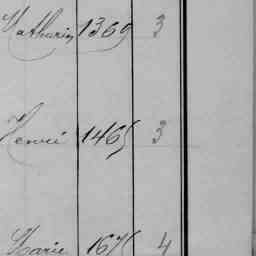 Mathurin 1369 3
Henri 1465 3
Marie 1675 4